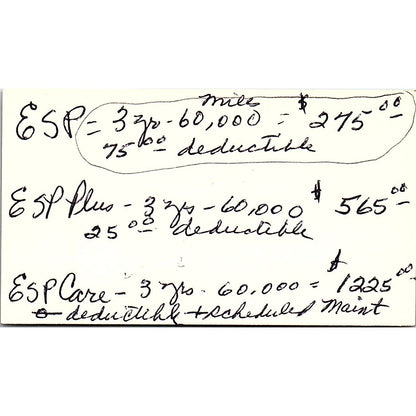 ESP = 3 yr - 60,000 miles = $275.00
75.00 deductible
ESP Plus - 3 yrs - 60,000 $565.00
25.00 deductible
ESP Care - 3 yrs. 60,000 = $1225.00
0 deductible + scheduled Maint